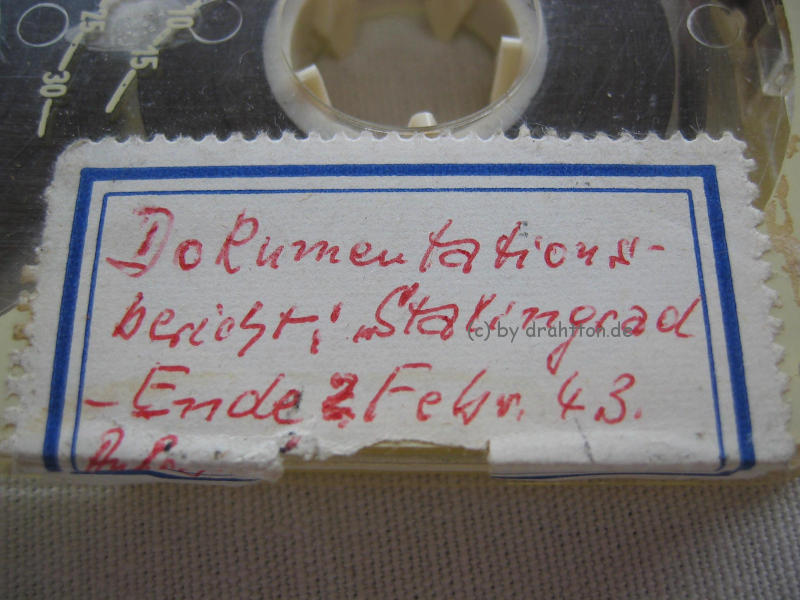 25
30
10
15
Dokumentations-
bericht: „Stalingrad
(c) by drahtton.de
- Ende 2 Febr. 43.